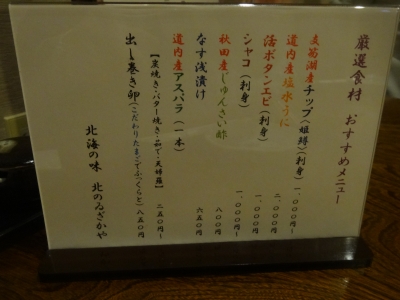 厳選食材 おすすめメニュー
支笏湖産チップ(姫鱒)(刺身) 一、〇〇〇円~
道内産塩水うに 二、〇〇〇円~
活ボタンエビ(刺身) 一、〇〇〇円~
シャコ(刺身) 一、〇〇〇円~
秋田産じゅんさい酢 八〇〇円
なす浅漬け 六五〇円
道内産アスパラ(一本)
【炭焼き・バター焼き・茹で・天婦羅】 二五〇円~
出し巻き卵(こだわりたまごでふっくらと) 八五〇円
北海の味 北のゐざかや